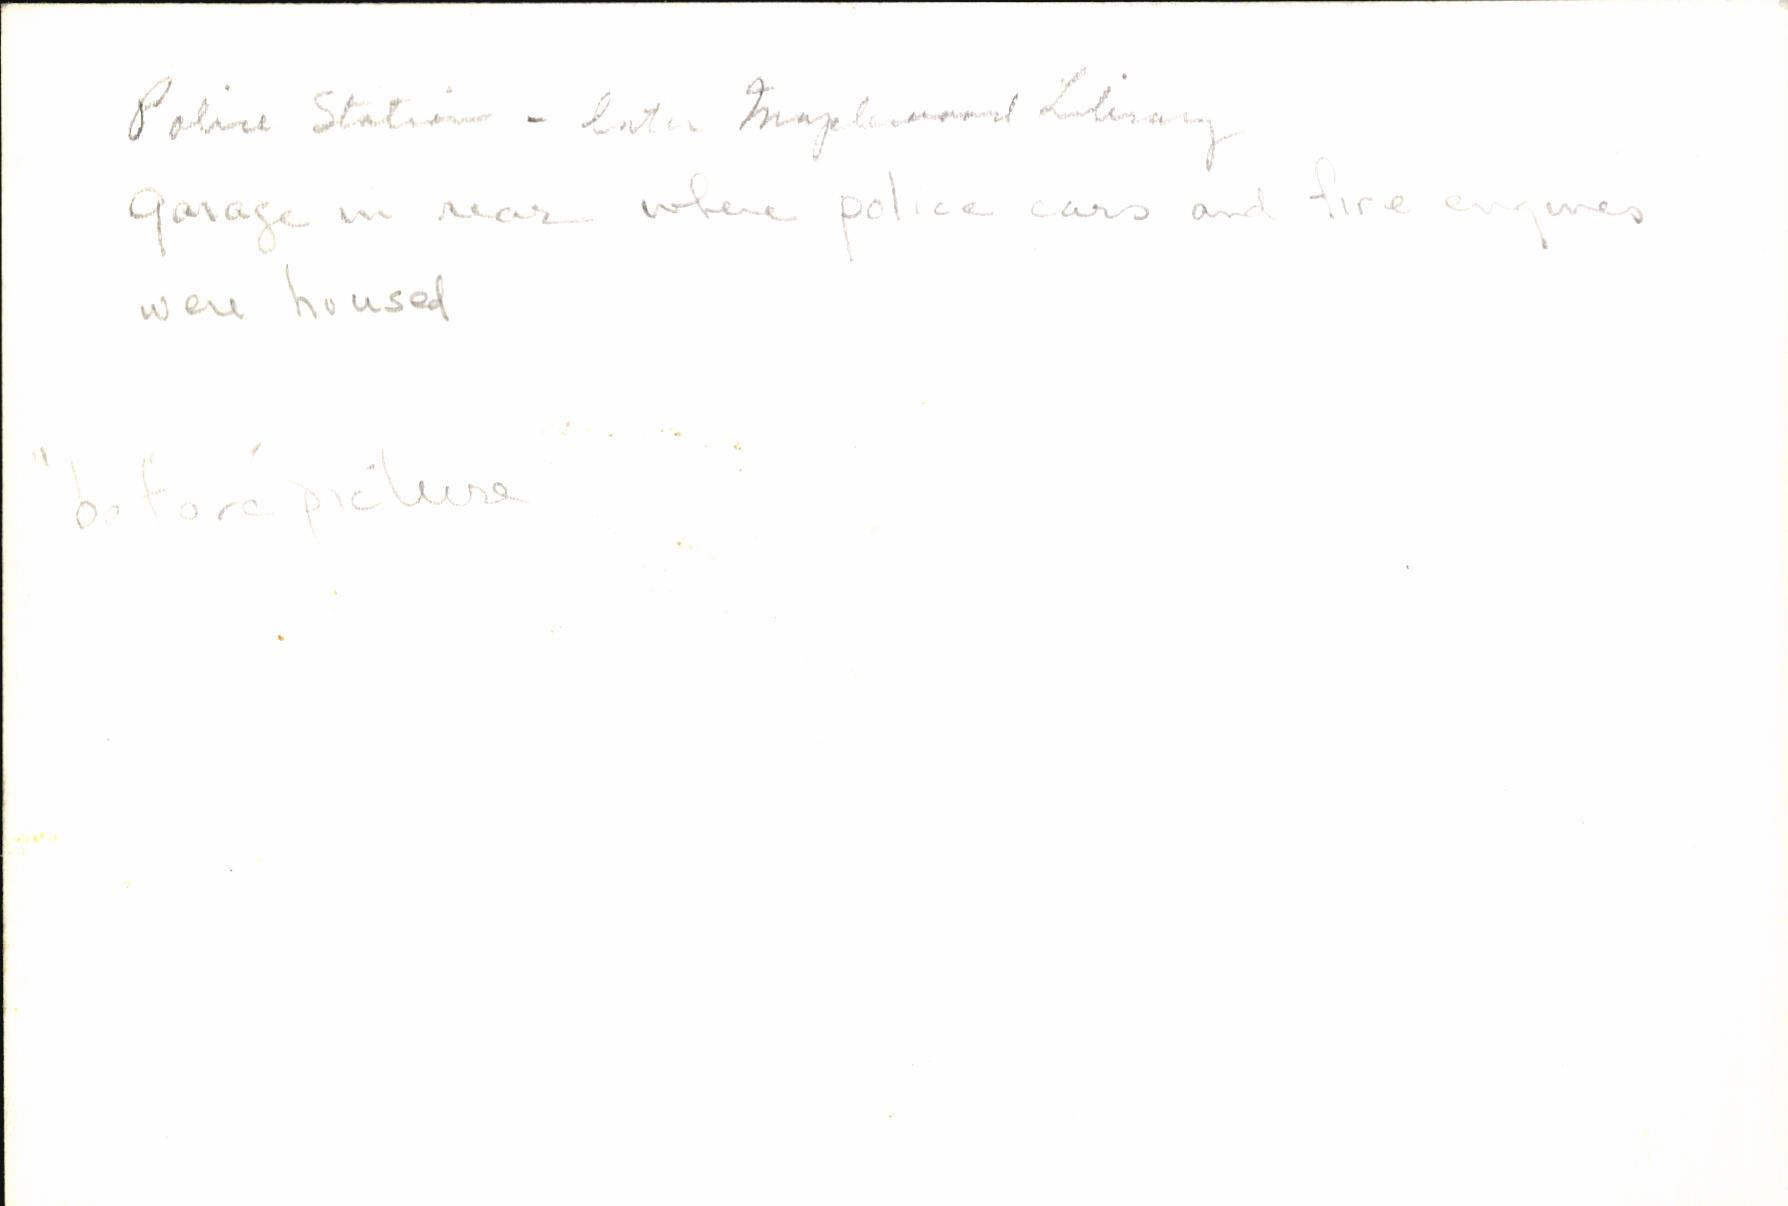 Police Station - later Maplewood Library
Garage in rear where police cars and fire engines
were housed
"before" picture